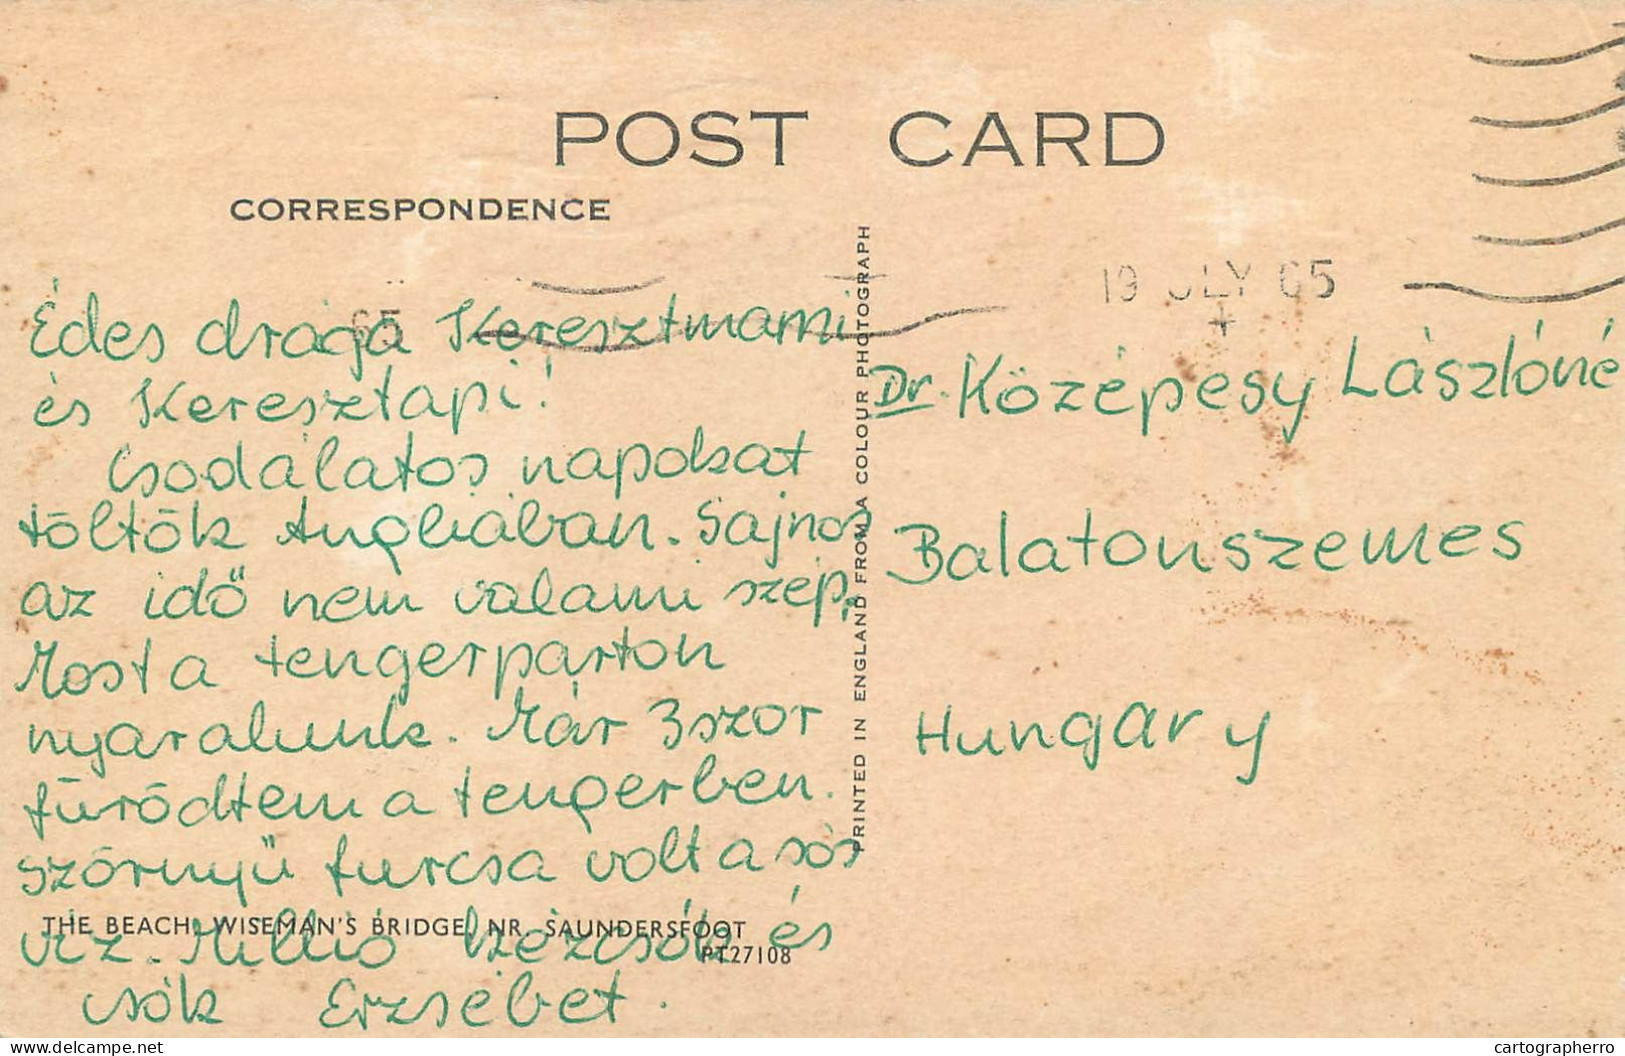 POST CARD
CORRESPONDENCE
19 JLY 65
65
Édes drága Keresztmami
és Keresztapi!
Csodálatos napokat
töltök Angliában. Sajnos
az idő nem valami szép.
Most a tengerparton
nyaralunk. Már 3szor
fürödtem a tengerben.
Szörnyű furcsa volt a sós
víz. Millió kézcsók és
csók Erzsébet.
THE BEACH, WISEMAN'S BRIDGE, NR. SAUNDERSFOOT
PT27108
PRINTED IN ENGLAND FROM A COLOUR PHOTOGRAPH
Dr. Középesy Lászlóné
Balatonszemes
Hungary
delcampe.net
cartographerro